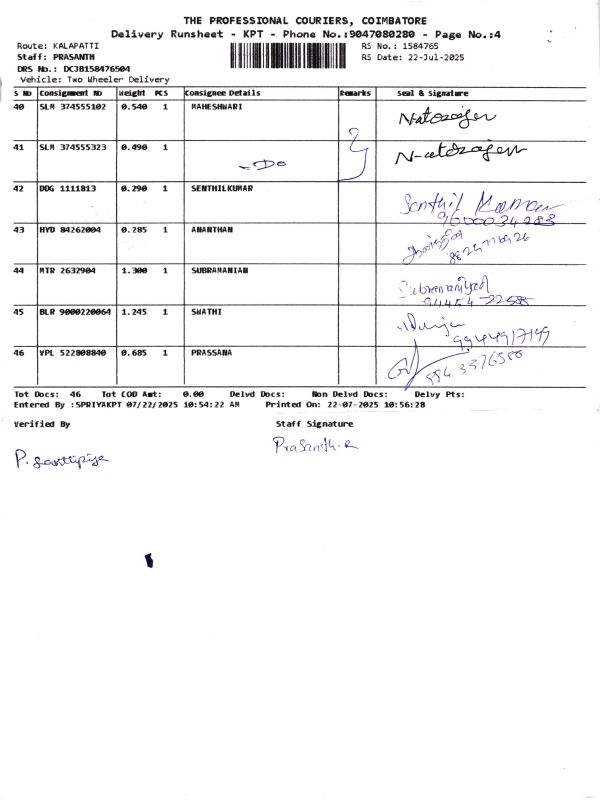 THE PROFESSIONAL COURIERS, COIMBATORE
Delivery Runsheet - KPT - Phone No.:9047080280 - Page No.:4
Route: KALAPATTI RS No.: 1584765
Staff: PRASANTH RS Date: 22-Jul-2025
DRS No.: DCJB158476504
Vehicle: Two Wheeler Delivery
S No Consignment No Weight PCS Consignee Details Remarks Seal & Signature
40 SLM 374555102 0.540 1 MAHESHWARI N-atorajen
41 SLM 374555323 0.490 1 -Do N-atorajen
42 DDG 1111813 0.290 1 SENTHILKUMAR Senthil Kumar
9600034283
43 HYD 84262004 0.285 1 ANANTHAN
44 MTR 2632904 1.300 1 SUBRAMANIAN
94454-2258
45 BLR 9000220064 1.245 1 SWATHI
9944917199
46 VPL 522808840 0.685 1 PRASSANA
9943376580
Tot Docs: 46 Tot COD Amt: 0.00 Delvd Docs: Non Delvd Docs: Delvy Pts:
Entered By :SPRIYAKPT 07/22/2025 10:54:22 AM Printed On: 22-07-2025 10:56:28
Verified By Staff Signature
P. Prasanth.R